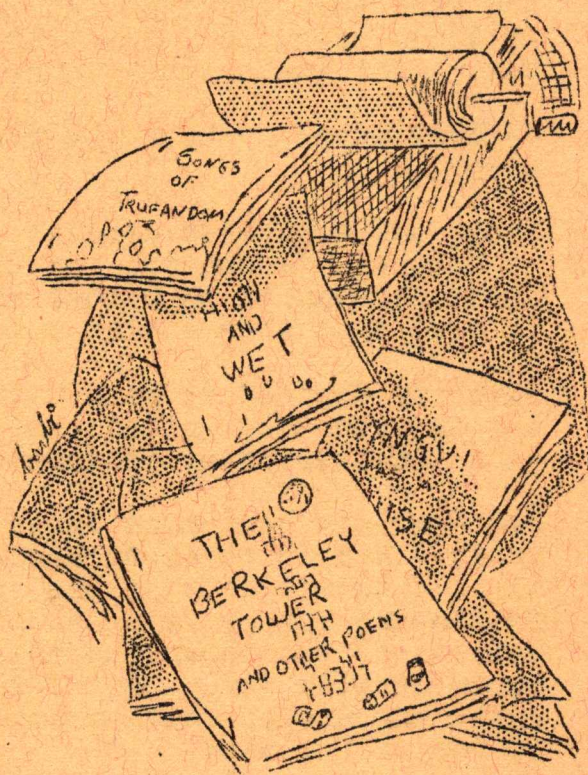 SONGS
OF
TRUFANDOM
HIGH
AND
WET
YNGVI
ISE
THE
BERKELEY
TOWER
AND OTHER POEMS